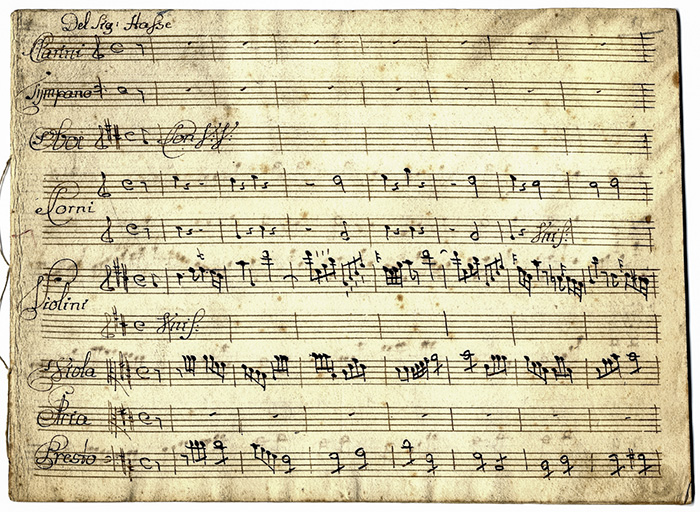 Del Sig: Hasse
Clarini
Tympano
Oboi Con V: V:
Corni
Unis:
Violini
Unis:
Viola
Aria
Presto